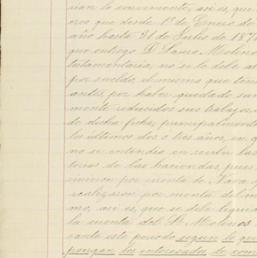 rían lo conveniente, así es, que
creo que desde 1º de Enero de
año hasta 31 de Julio de 187
que entregó D. Molino
testamentaria, no se le debe ab
por sueldo, el mismo que ten
antes, por haber quedado sum
mente reducidos sus trabajos
de dicha fecha, principalmente
los últimos dos ó tres años, en q
no se entendía en recibir las
de las haciendas, pues
por cuenta de
realizaron por cuenta del
mo, así es, que se debe
la cuenta del Sr. Molino
este período según lo que
pongan los interesados de com